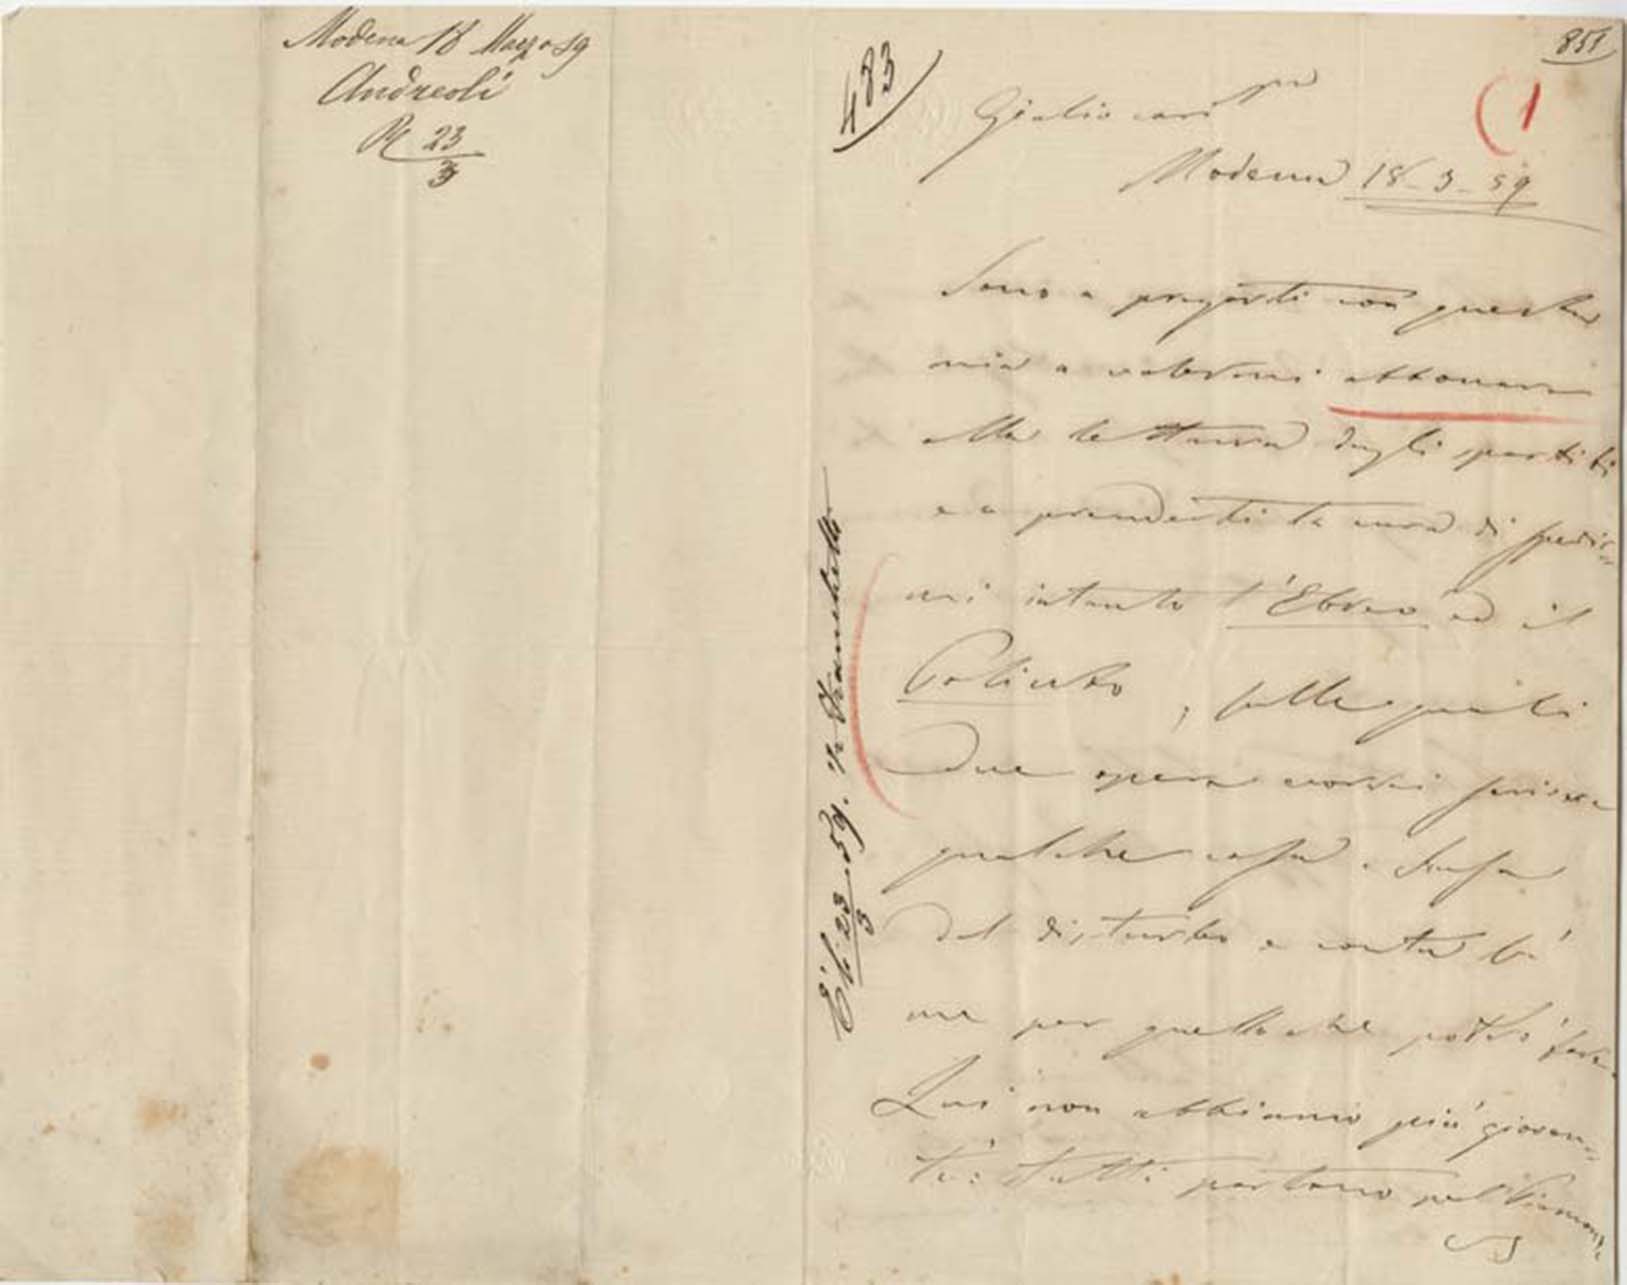 Modena 18 Marzo 59
Andreoli
R 23
3
483
851
(1
Giulio cariss.mo
Modena 18-3-59
Sono a pregarti con questa
mia a volermi abbonare
alla lettura degli spartiti
e a prenderti la cura di spedir=
mi intanto l'Ebreo ed il
Poliuto, sulle quali
due opere vorrei scrivere
qualche cosa. Scusa
del disturbo e conta su
me per quello che potrò fare.
Qui non abbiamo più gioven=
tù: tutti partono pel Piemonte
23
3
59.